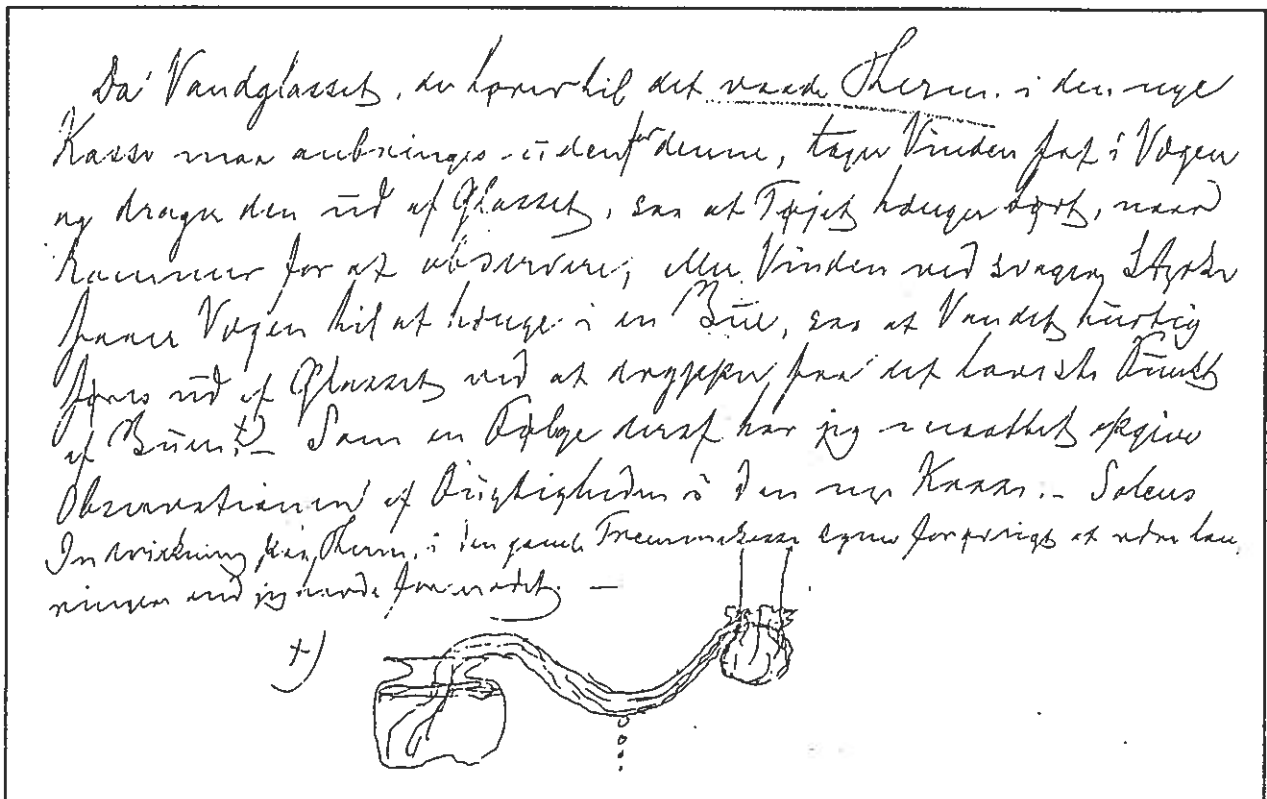 Da Vandglasset, der hører til det vaade Therm. i den nye
Kasse maa anbringes udenfor denne, tager Vinden fat i Vægen
og drager den ud af Glasset, saa at Tøjet hænger tørt, naar
kommer for at observere; eller Vinden ved svagere Styrke
faaer Vægen til at hænge i en Bue, saa at Vandet hurtig
føres ud af Glasset ved at dryppe fra det laveste Punkt
af Buen.+) Som en Følge deraf har jeg maattet opgive
Observationen af Fugtigheden i den nye Kasse. – Solens
Indvirkning paa Therm. i den gamle Tremmekasse synes forøvrigt at være
ringere end jeg havde formodet. –
+)